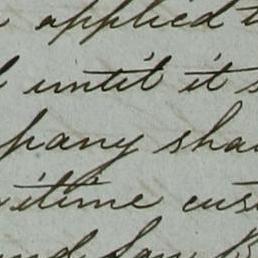 applied t
until it s
pany sha
itime cus
and Law B